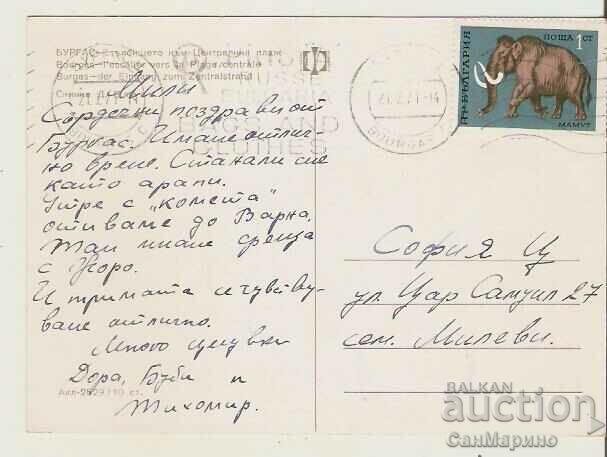 БУРГАС–Стълбището към Централния плаж
Bourgas–l'escalier vers la Plage centrale
Burgas–der Eingang zum Zentralstrand
Снимка
Мили
Сърдечни поздрави от
Бургас. Имаме отлич-
но време. Станали сме
като арапи.
Утре с "Комета"
отиваме до Варна.
Там имаме среща
с
И тримата се чувству-
ваме отлично.
Много целувки
Дора, Буби и
Тихомир.
BAGS AND
CLOTHES
BOURGAS
НР БЪЛГАРИЯ
ПОЩА 1 СТ
МАМУТ
София Ц
ул. Цар Самуил 27
сем. Милеви.
BALKAN
auction
СанМарино